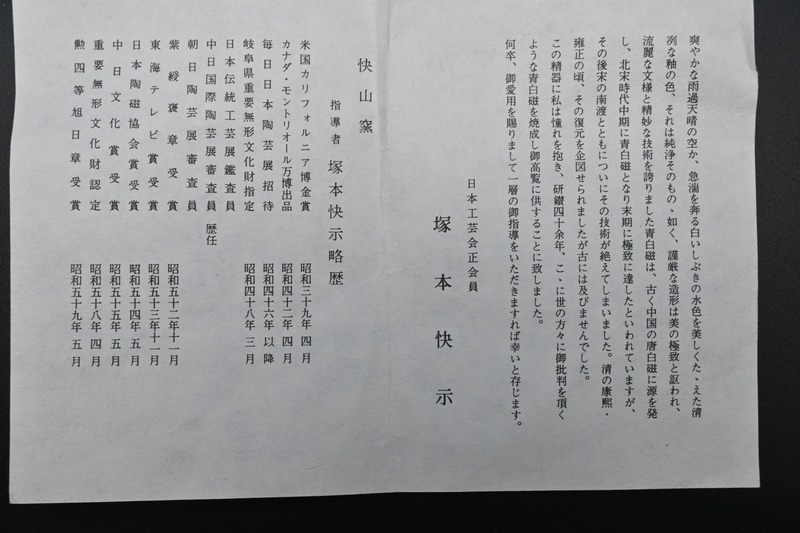 爽やかな雨過天晴の空か、急湍を奔る白いしぶきの水色を美しくたゝえた清
冽な釉の色、それは純浄そのものゝ如く、謹厳な造形は美の極致と謳われ、
流麗な文様と精妙な技術を誇りました青白磁は、古く中国の唐白磁に源を発
し、北宋時代中期に青白磁となり末期に極致に達したといわれていますが、
その後宋の南渡とともについにその技術が絶えてしまいました。清の康熙・
雍正の頃、その復元を企図せられましたが古には及びませんでした。
この精器に私は憧れを抱き、研鑽四十余年、こゝに世の方々に御批判を頂く
ような青白磁を焼成し御高覧に供することに致しました。
何卒、御愛用を賜りまして一層の御指導をいただきますれば幸いと存じます。
日本工芸会正会員
塚本快示
快山窯
指導者 塚本快示略歴
米国カリフォルニア博金賞 昭和三十九年四月
カナダ・モントリオール万博出品 昭和四十二年四月
毎日日本陶芸展招待 昭和四十六年以降
岐阜県重要無形文化財指定 昭和四十八年三月
日本伝統工芸展鑑査員
中日国際陶芸展審査員 歴任
朝日陶芸展審査員
紫綬褒章受賞 昭和五十二年十一月
東海テレビ賞受賞 昭和五十三年十一月
日本陶磁協会賞受賞 昭和五十四年五月
中日文化賞受賞 昭和五十五年五月
重要無形文化財認定 昭和五十八年四月
勲四等旭日章受賞 昭和五十九年五月